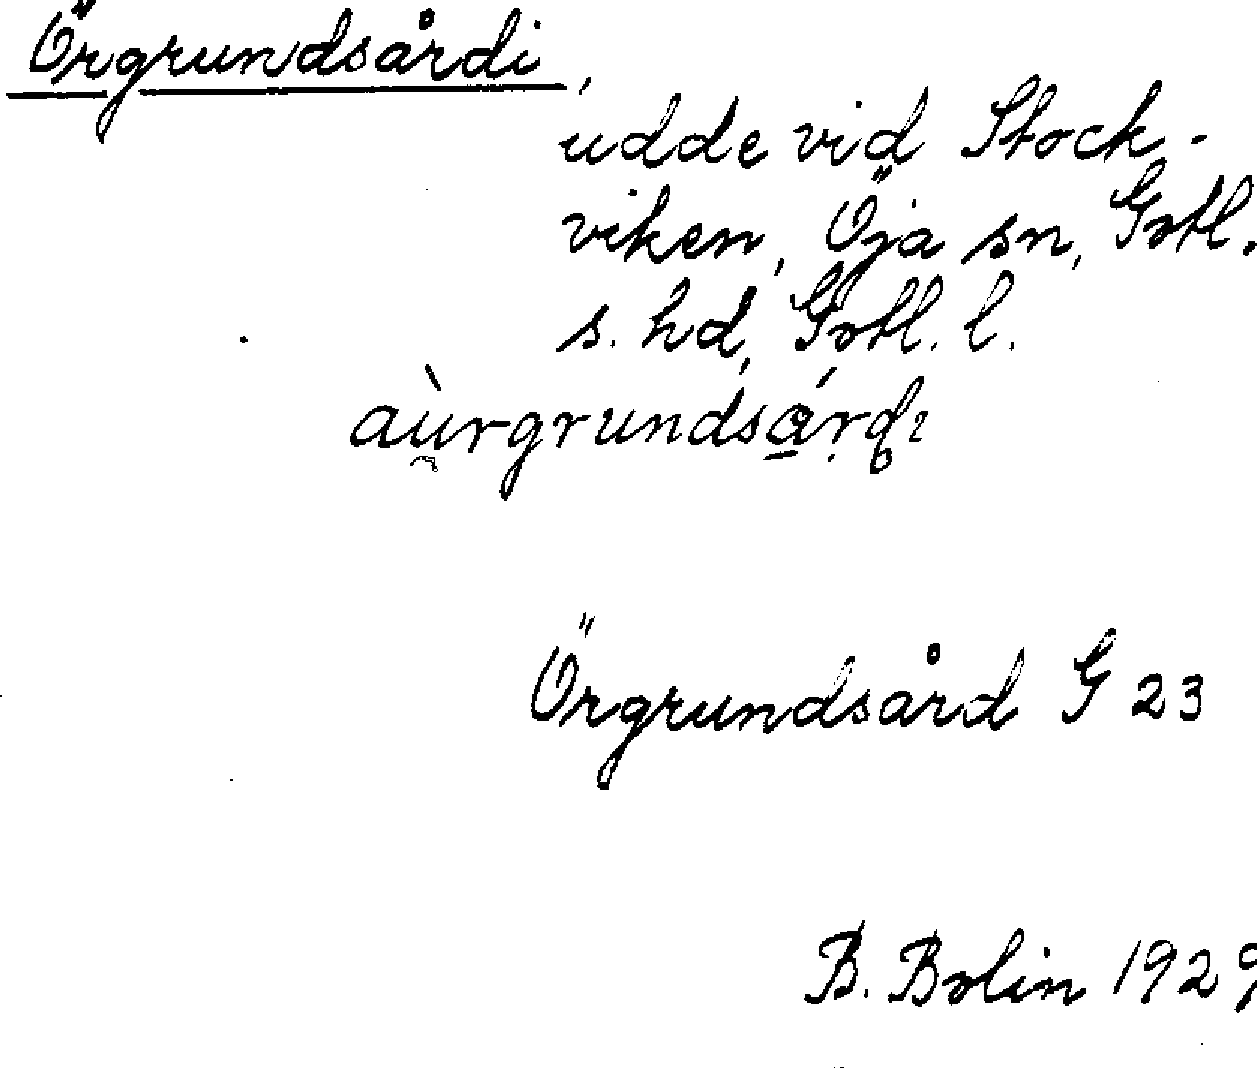 Örgrundsårdi,
udde vid Stock-
viken, Öja sn, Gotl.
s. hd, Gotl. l.
aù̯rgrundsá̱rdi
Örgrundsård G 23
B. Bolin 1929